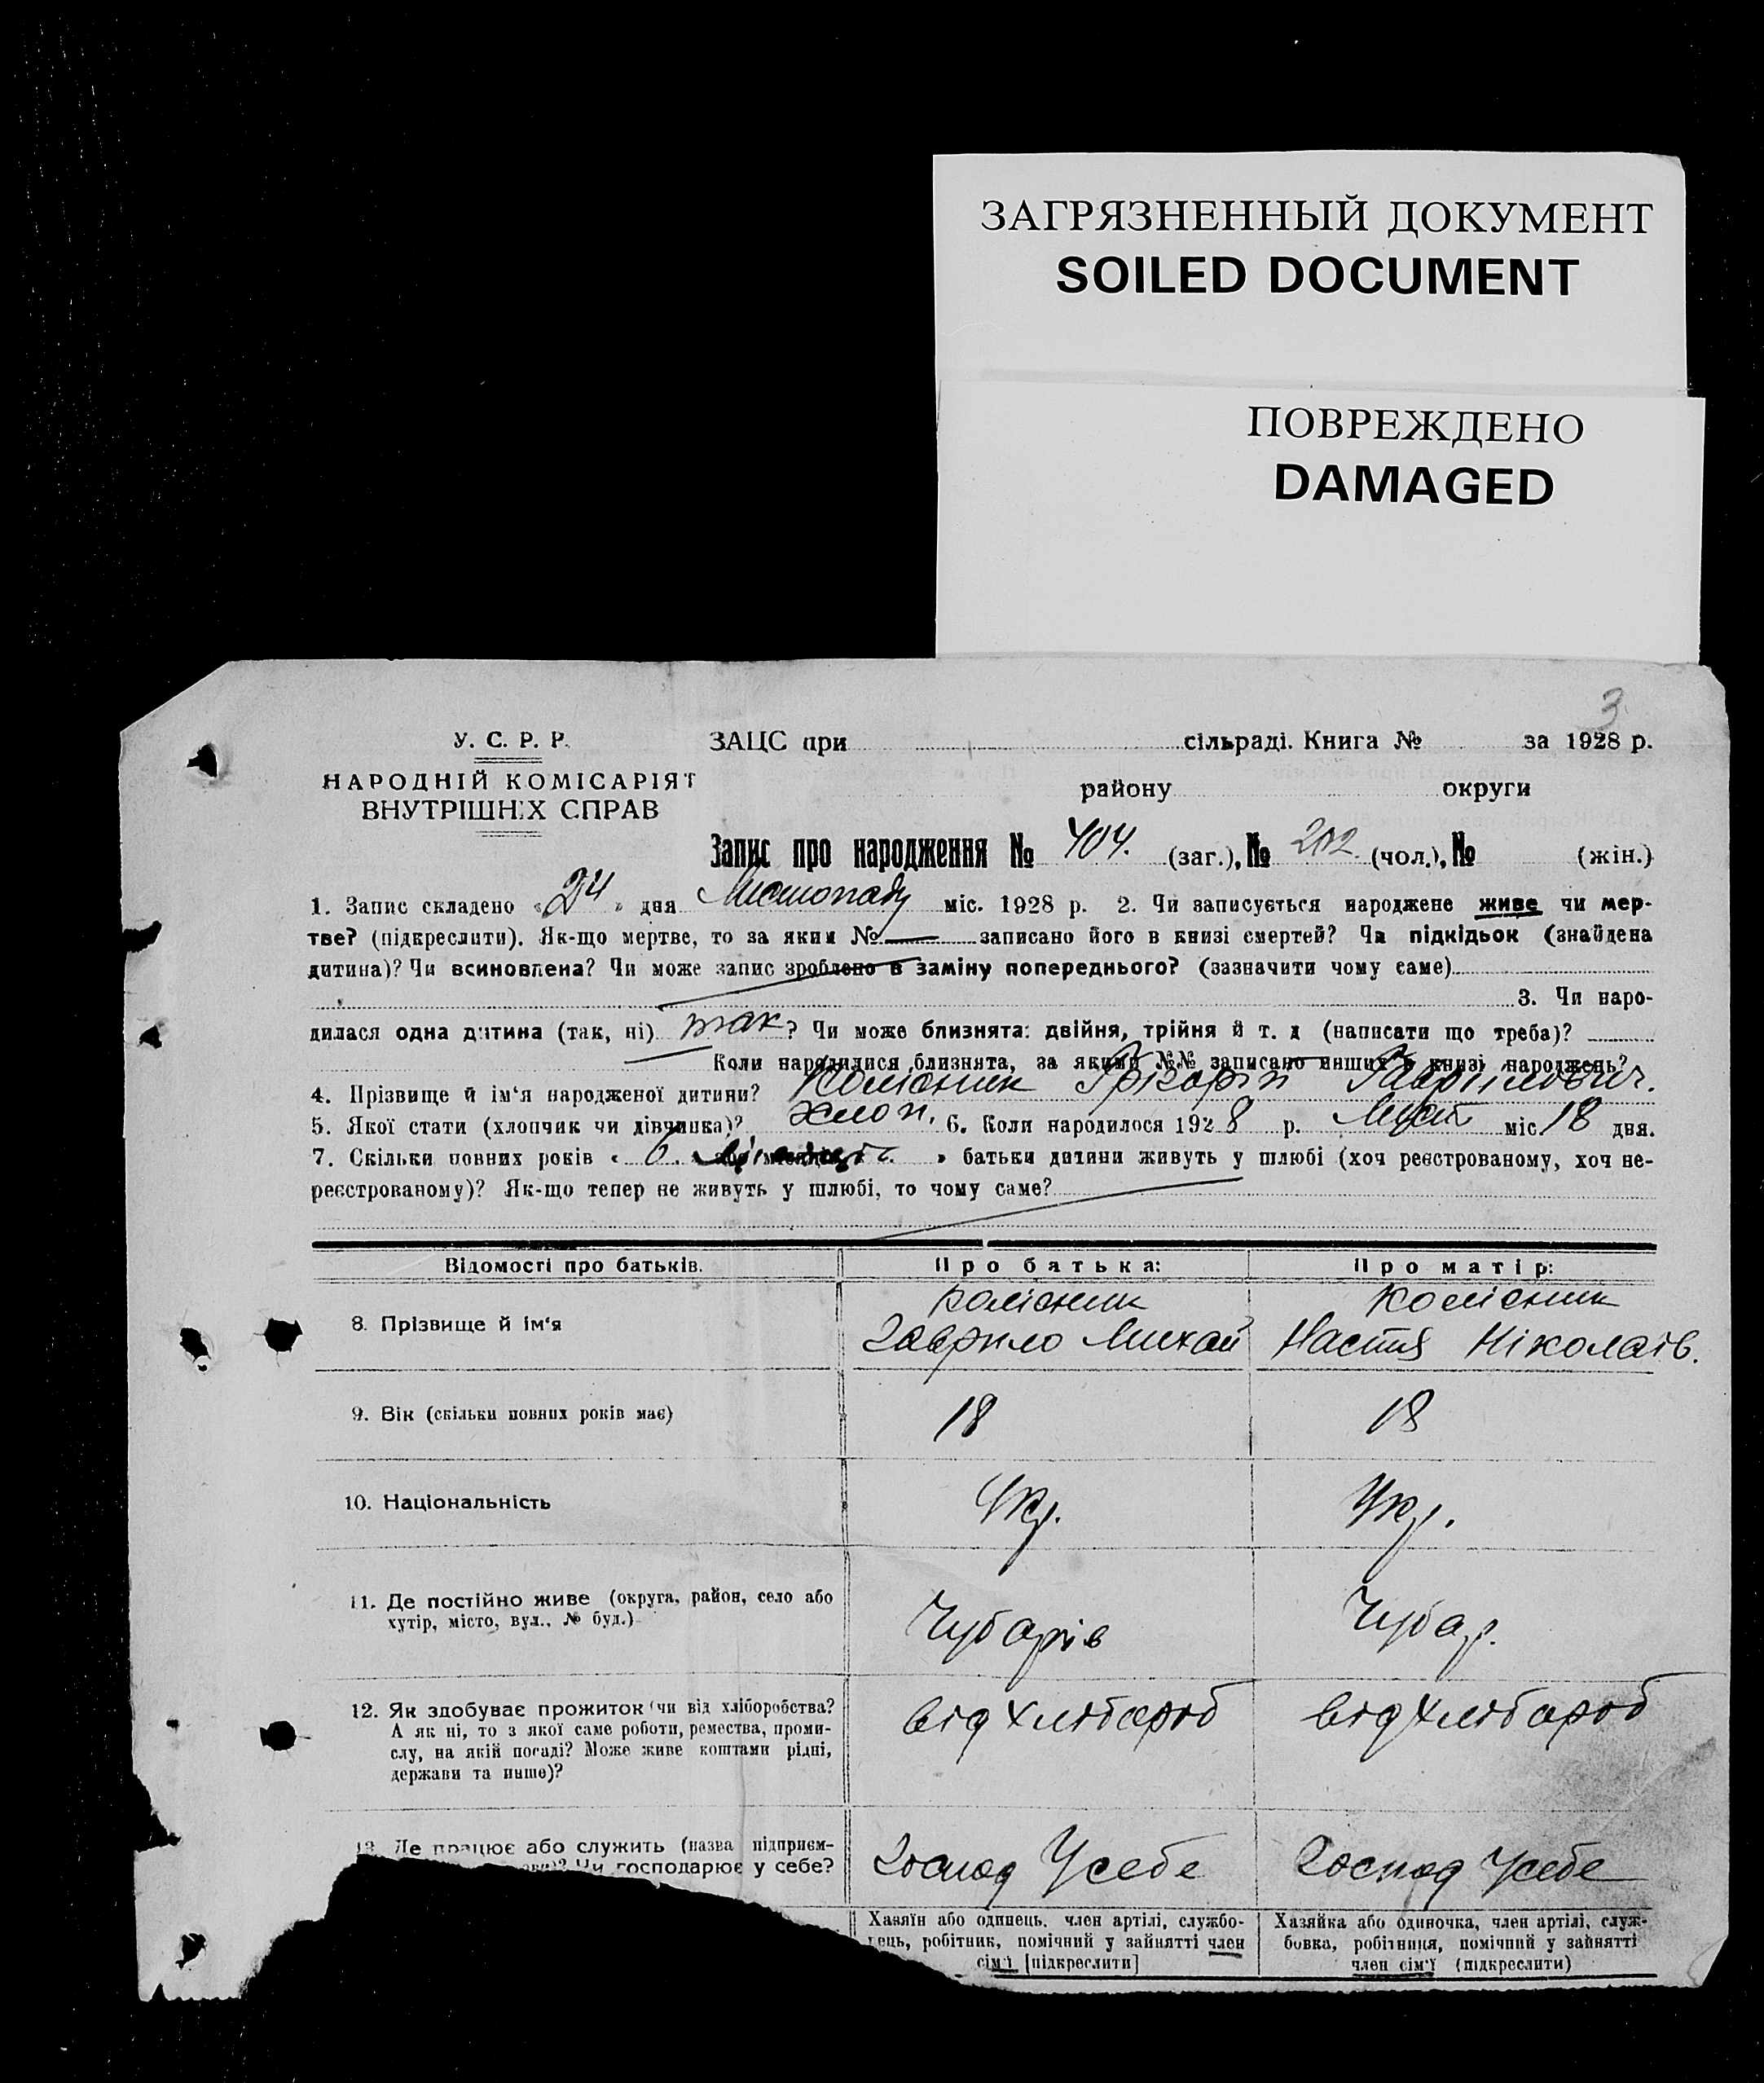 ЗАГРЯЗНЕННЫЙ ДОКУМЕНТ
SOILED DOCUMENT
ПОВРЕЖДЕНО
DAMAGED
3
У. С. Р. Р.
НАРОДНІЙ КОМІСАРІЯТ
ВНУТРІШНІХ СПРАВ
ЗАЦС при сільраді. Книга № за 1928 р.
району округи
Запис про народження № 404. (заг.), № 202 (чол.), № (жін.)
1. Запис складено «24» дня Листопаду міс. 1928 р. 2. Чи записується народжене живе чи мер-
тве? (підкреслити). Як-що мертве, то за яким № записано його в книзі смертей? Чи підкідьок (знайдена
дитина)? Чи всиновлена? Чи може запис зроблено в заміну попереднього? (зазначити чому саме)
3. Чи наро-
дилася одна дитина (так, ні) так? Чи може близнята: двійня, трійня й т. д (написати що треба)?
Коли народилися близнята, за якими №№ записано инших в книзі народжень?
4. Прізвище й ім'я народженої дитини? Колісник Грігорій Гаврілович.
5. Якої статі (хлопчик чи дівчинка)? хлоп. 6. Коли народилося 1928 р. Лист міс. 18 дня.
7. Скільки повних років « 6. » батьки дитини живуть у шлюбі (хоч реєстрованому, хоч не-
реєстрованому)? Як-що тепер не живуть у шлюбі, то чому саме?
Відомості про батьків. Про батька: Про матір:
8. Прізвище й ім'я
Колісник Колісник
Гаврило Михай Настя Ніколаів.
9. Вік (скільки повних років має) 18 18
10. Національність Укр. Укр.
11. Де постійно живе (округа, район, село або
хутір, місто, вул., № буд.)
Чубарів Чубар.
12. Як здобуває прожиток (чи від хліборобства?
А як ні, то з якої саме роботи, ремества, проми-
слу, на якій посаді? Може живе коштами рідні,
держави та инше)?
від хлібароб від хлібароб
13. Де працює або служить (назва підприєм-
Чи господарює у себе?
Господ Усебе Господ Усебе
Хазяїн або одинець, член артілі, службо-
вець, робітник, помічний у зайнятті член
сім'ї [підкреслити]
Хазяйка або одиночка, член артілі, служ-
бовка, робітниця, помічний у зайнятті
член сім'ї (підкреслити)